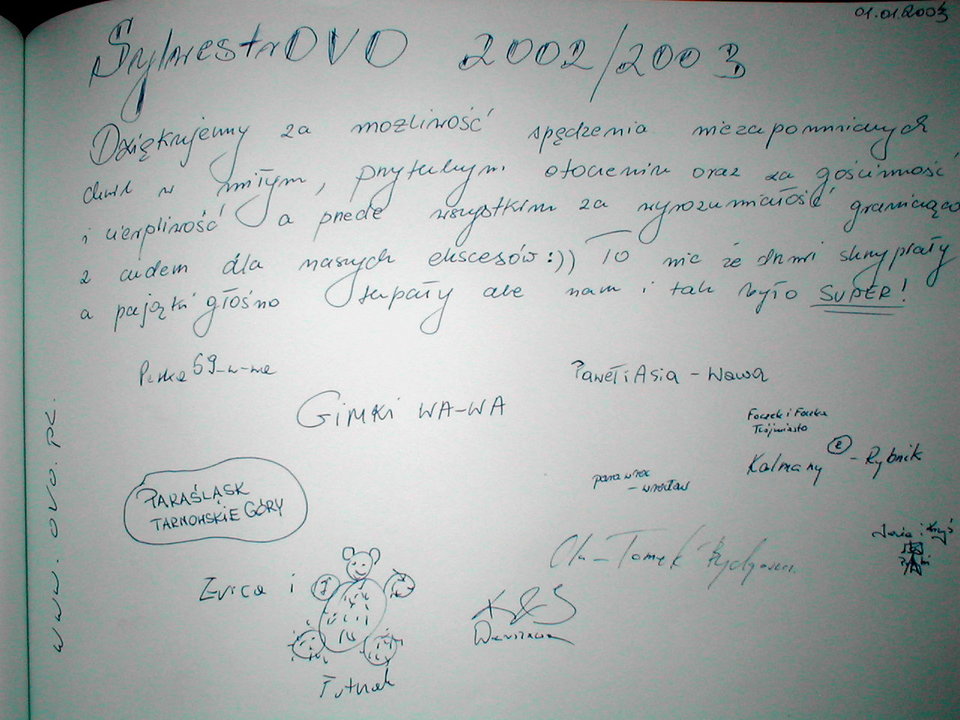 01.01.2003
SylwestrOVO 2002/2003
Dziękujemy za możliwość spędzenia niezapomnianych
chwil w miłym, przytulnym otoczeniu oraz za gościnność
i cierpliwość a przede wszystkim za wyrozumiałość graniczącą
z cudem dla naszych ekscesów :)) To nic że drzwi skrzypiały
a pajączki głośno tupały ale nam i tak było SUPER!
69-w-wa
Paweł i Asia - Wawa
GIMKI WA-WA
Foczek i Foczka
Trójmiasto
Kalmany 2 - Rybnik
para wroc
- wrocław
PARAŚLĄSK
TARNOWSKIE GÓRY
Ola - Tomek Bydgoszcz
i Krzyś
i
K&S
Warszawa
Futrzak
www.ovo.pl.